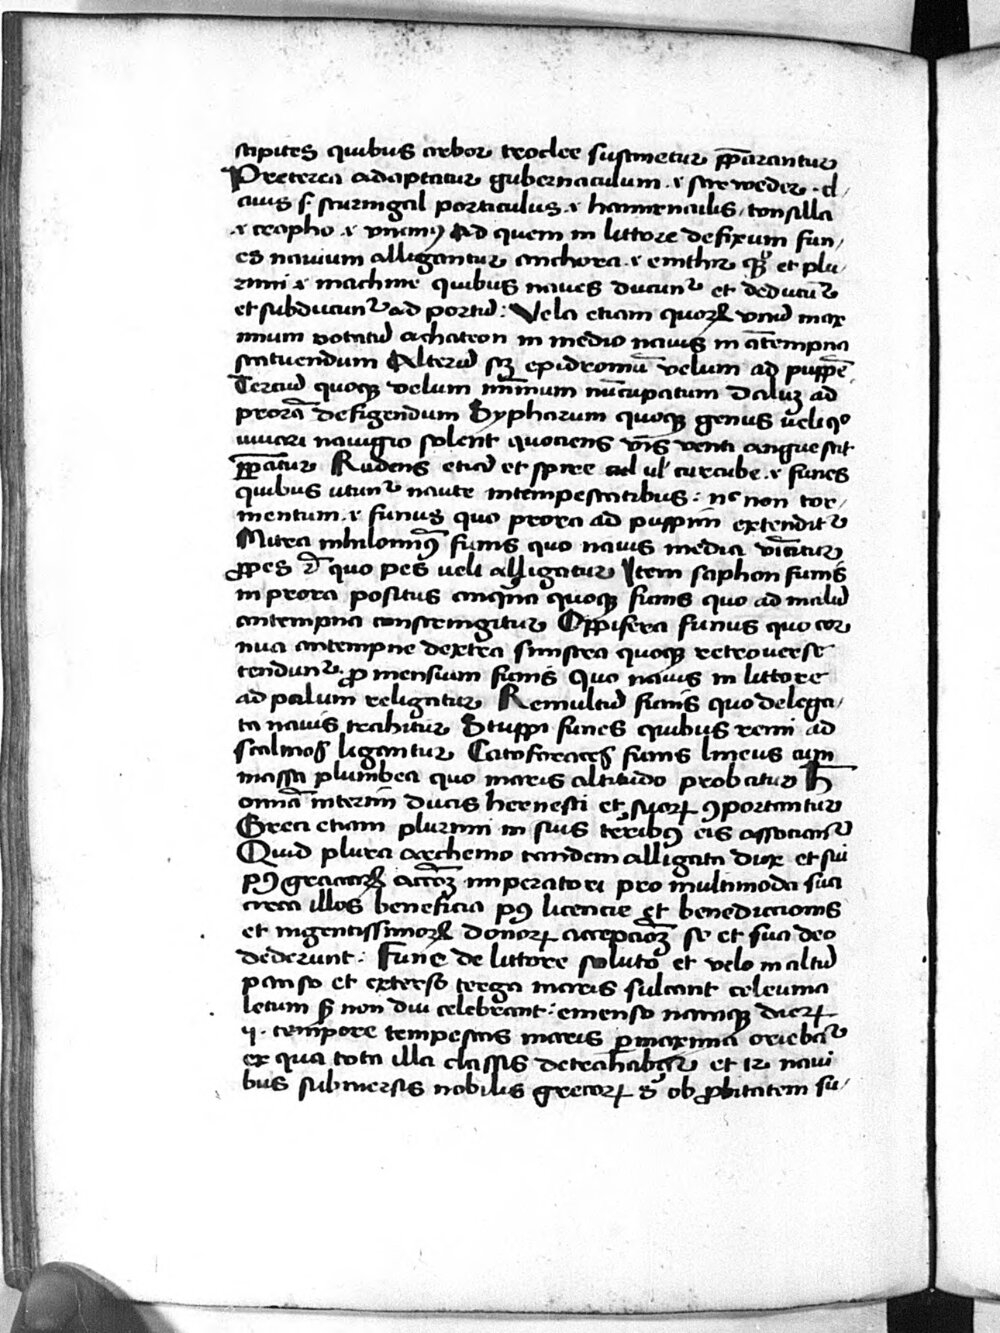 stipites quibus arbor troclee sustinetur pparantur
Preterea adaptatur gubernaculum .i. sterweder . cl/
auus s. sturnigal porticulus .i. hamermalis / tonsilla
.i. trapho .i. vncinꝰ Ad quem in littore defixum fun/
es nauium alligantur anchora .i. et plu
rimi .i. machine quibus naues ducunt᷑ et deducūt᷑
et subducunt᷑ ad portū : Vela etiam quorꝝ vnū max
imum vocatū achateon in medio nauis in ātempna
statuendum Alterū sꝫ epidromū velum ad puppē
Terciū quoqꝫ velum mīmum nūcupatum daluꝫ ad
prorā defigendum Sypharum quoqꝫ genus veli qͦ
iuuari nauigio solent quociens vis venti languescit
ppatur Rudens eciā et spire ul' curcube .i. funes
quibus utunt᷑ naute intempestatibus : nͨ non tor/
mentum .i. funus quo prora ad puppim extendit᷑
Mitra nihilominꝰ funis quo nauis media vīcitur
ꝓpes quo pes veli alligatur Item saphon funis
in prora positus anqͥna quoqꝫ funis quo ad malū
antempna constringitur Oppifera funus quo cor
nua antempne dextra sinistra quoqꝫ retrouerse
tendunt᷑ ꝓmensium funis Quo nauis in littore
ad palum religatur Remultū funis quo delega/
ta nauis trahitur Stuppi funes quibus remi ad
scalmos ligantur Catoforates funis lineus cum
massa plumbea quo maris altitudo probatur H
omnia interim ducis hernesti et suorꝝ ꝯportantur
Greci etiam plurimi in suis eis associant᷑
Quid plura archemo tandem alligata dux et sui
pꝰ graciarꝝ accōꝫ imperatori pro multimoda sua
circa illos beneficia pꝰ licencie et benedictionis
et ingentissimorꝝ donorꝝ accepciōꝫ se et sua deo
dederunt : Fune de littore soluto et velo in altū
panso et exterso terga maris sulcant celeuma
letum ꝫ non diu celebrant : emenso namqꝫ dierꝝ
ij . tempore tempestas maris ꝑmaxima oriebat᷑
ex qua tota illa classis detrahabat᷑ et naui
bus submersis nobilis grecorꝝ ob ꝓbitatem su/